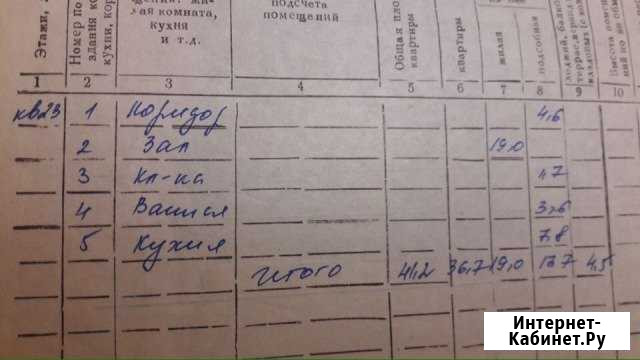 Этажи,
Номер по
здания
кухни, кор
жи-
лая комната,
кухня
и т.д.
подсчета
помещений
Общая пло
квартиры
квартиры
жилая
подсобная
1 2 3 4 5 6 7 8 9 10
кв23 1 Коридор 4,6
2 Зал 19,0
3 Кл-ка 1,7
4 Ванная 3,6
5 Кухня 7,8
итого 41,2 36,7 19,0 17,7 4,5
Интернет-
Кабинет.Ру